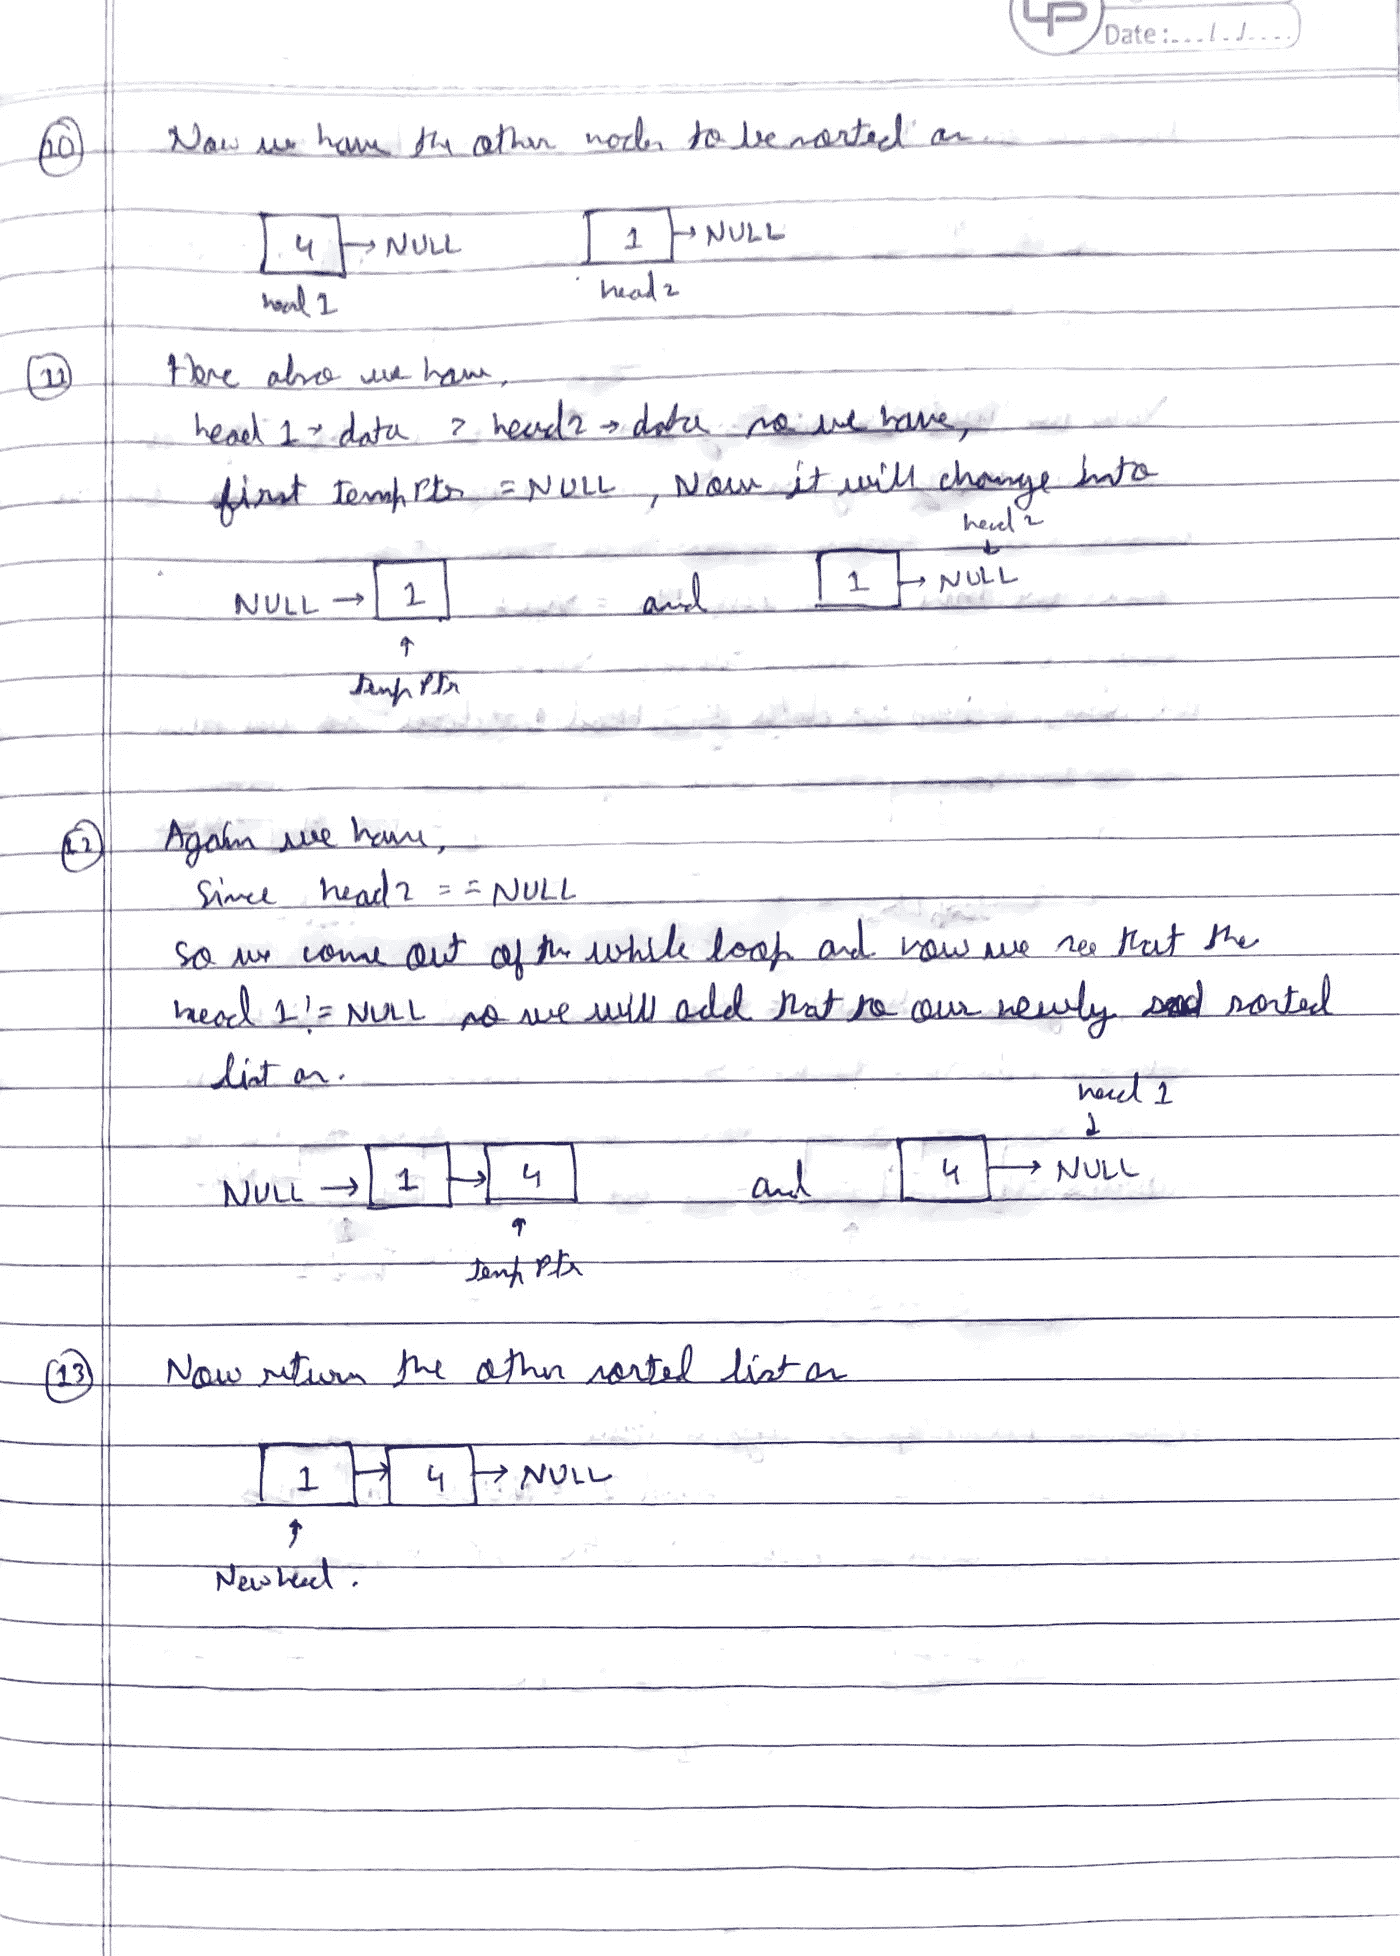 LP
Date:.../../....
10 Now we have the other nodes to be sorted as
4 → NULL 1 → NULL
head 1 head 2
11 Here also we have,
head 1 → data > head 2 → data so we have,
first tempPtr = NULL, Now it will change into
head 2
↓
NULL → 1 and 1 → NULL
↑
temp Ptr
12 Again we have,
Since head 2 == NULL
So we come out of the while loop and now we see that the
head 1 != NULL so we will add that to our newly sorted
list as.
head 1
↓
NULL → 1 → 4 and 4 → NULL
↑
temp Ptr
13 Now return the other sorted list as
1 → 4 → NULL
↑
Newhead.